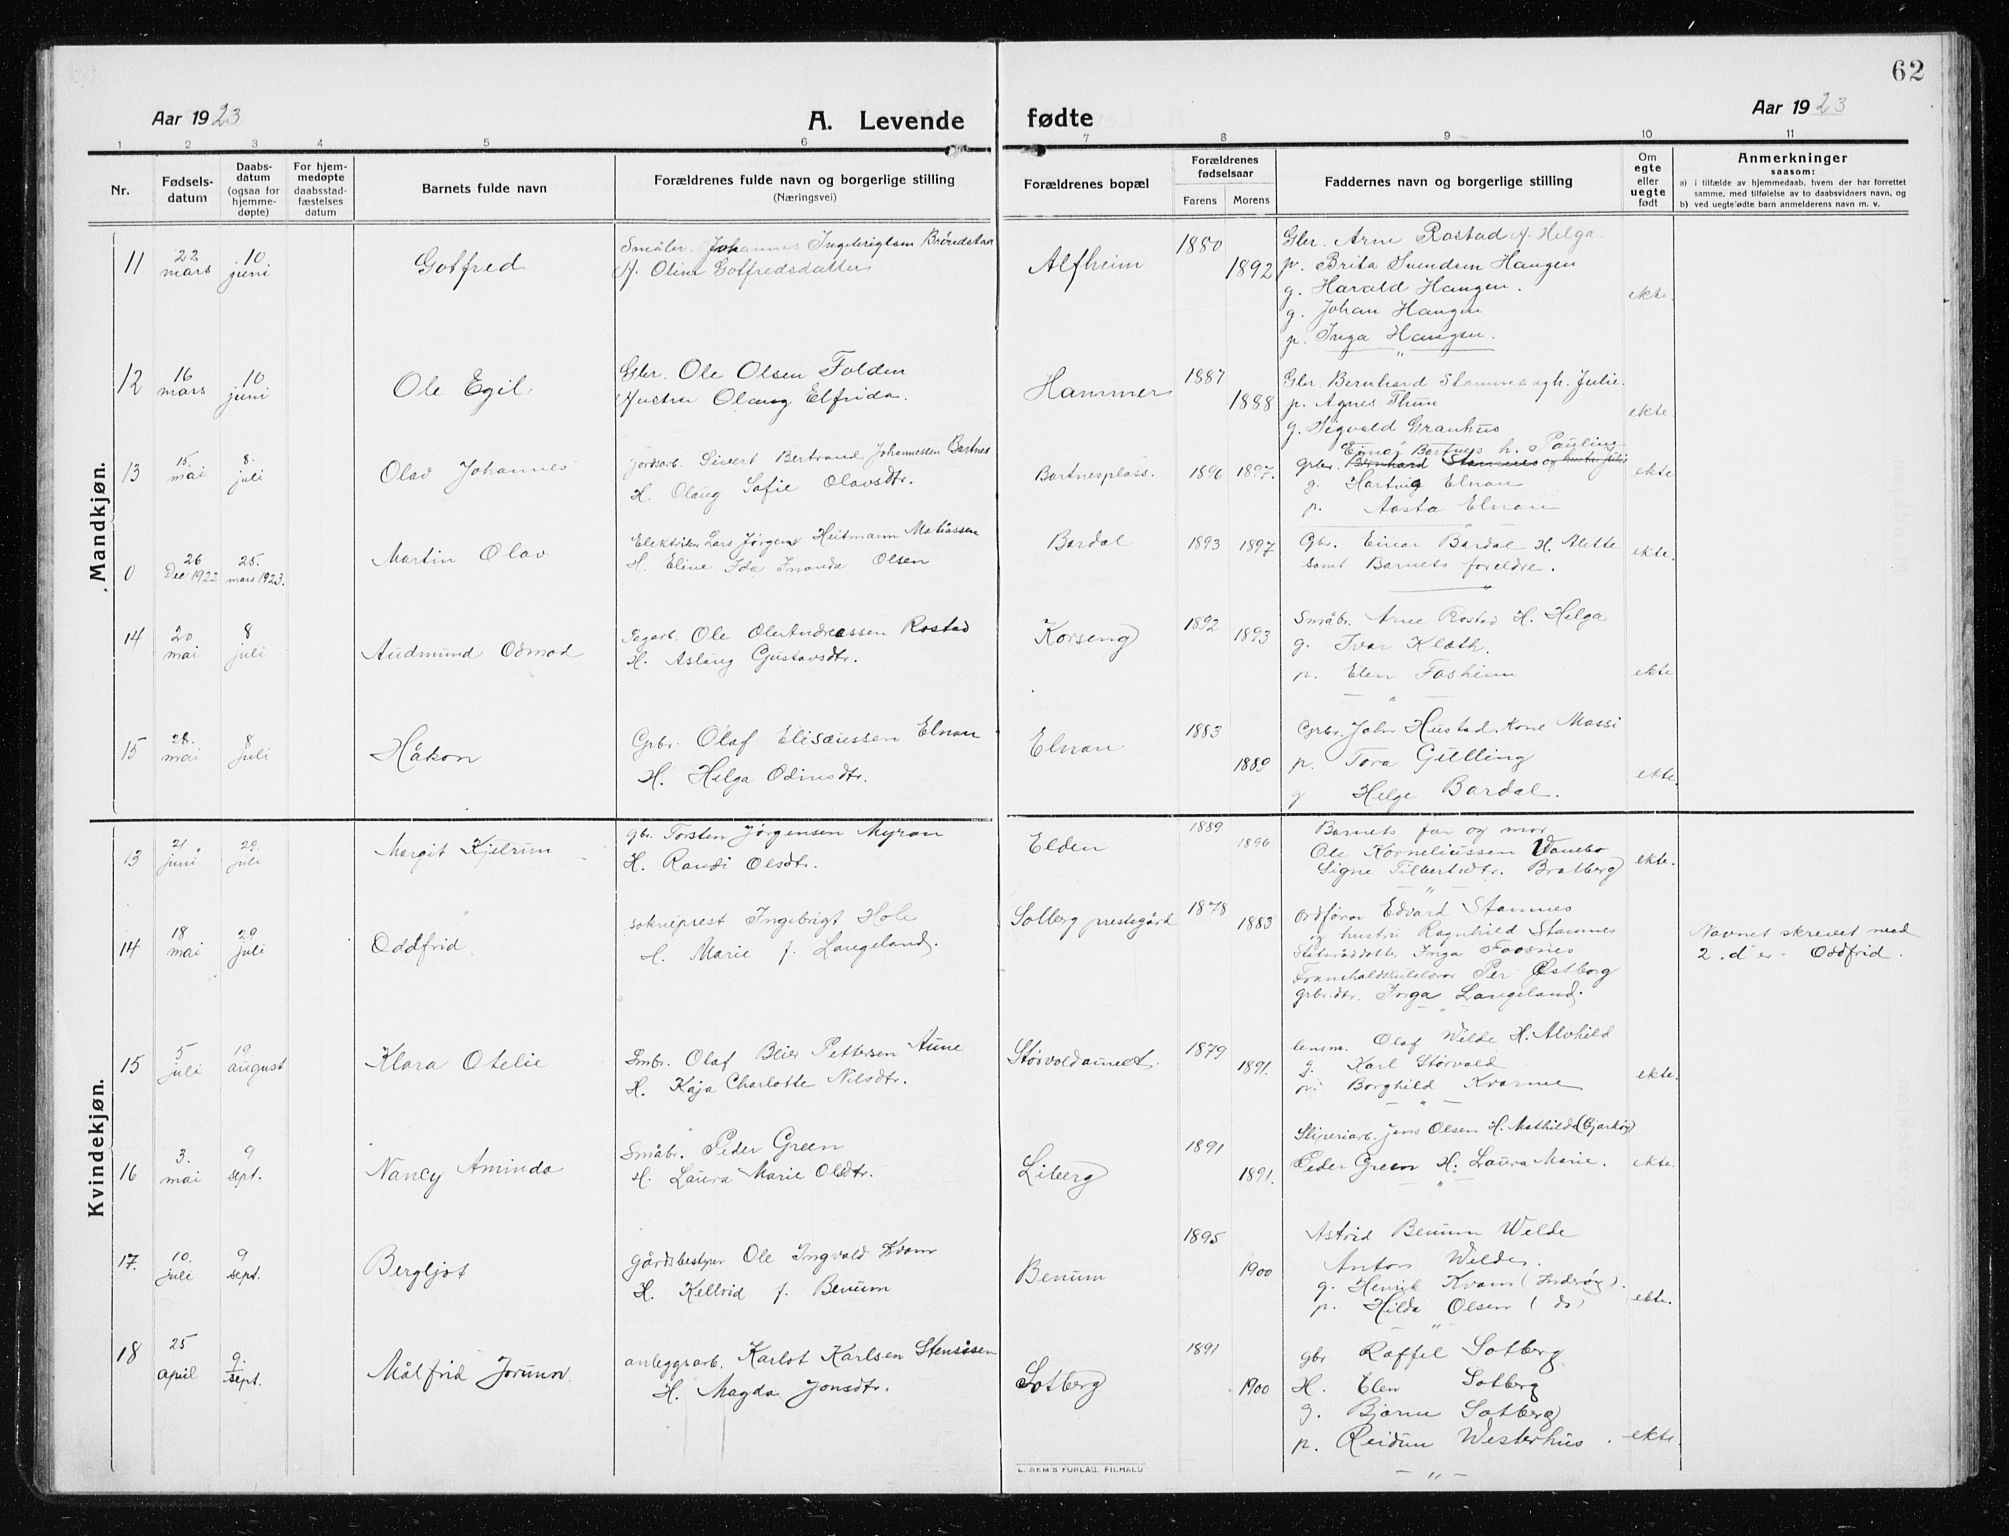 62
Aar 1923
A. Levende fødte
Aar 1923
1 2 3 4 5 6 7 8 9 10 11
Nr.
Fødsels-
datum
Daabs-
datum
(ogsaa for
hjemme-
døpte)
For hjem-
medøpte
daabsstad-
fæstelses
datum
Barnets fulde navn
Forældrenes fulde navn og borgerlige stilling
(Næringsvei)
Forældrenes bopæl
Forældrenes
fødselsaar
Farens Morens
Faddernes navn og borgerlige stilling
Om
egte
eller
uegte
født
Anmerkninger
saasom:
a) i tilfælde av hjemmedaab, hvem der har forrettet
samme, med tilføielse av to daabsvidners navn, og
b) ved uegte fødte barn anmelderens navn m. v.
Mandkjøn.
11 22 mars 10 juni
Gotfred
Johannes Ingebrigtsen
H. Oline Gotfredsdatter
Alfheim
1880 1892
Gbr. Arne Rostad H. Helga.
p. Brita Svendsen Haugen
g. Harald Haugen.
g. Johan Haugen
p. Inga Haugen.
ekte.
12 16 mars 10 juni
Ole Egil.
Gbr. Ole Olsen Folden
Hustru Olaug Elfrida.
Hammer
1887 1888
Gbr. Bernhard Stamnes og h. Julie.
p. Agnes Thun
g. Sigvald Granhus
ekte
13 15. mai 8. juli
Olav Johannes
jordarb. Sivert Bertrand Johannessen Bartnes
H. Olaug Sofie Olavsdtr.
Bartnesplass.
1896 1897.
Einar Bartnes h. Pauline
grbr. Bernhard Stamnes og hustru Julie
g. Hartvig Elnan
p. Aasta Elnan
ekte
0 26 Dec 1922 25. mars 1923.
Martin Olav
Elektriker Lars Jørgen Heitmann Matiassen
H. Eline Ida Olsen
Bardal
1893 1897
Gbr. Einar Bardal H. Alette
samt Barnets foreldre.
ekte.
14 20. mai 8 juli
Audmund Odmod
Ole OleAndreassen Rostad
H. Aslaug Gustavsdtr.
Korseng
1892 1893
Småbr. Arne Rostad H. Helga
g. Ivar Kløth.
p. Elen Fosheim
ekte
15 28. mai 8 juli
Håkon
Grbr. Olaf Elisæussen Elnan
H. Helga Odinsdtr.
Elnan
1883 1889
Grbr. John Hustad. Kone Massi
p. Tora Gilling
g Helge Bardal.
ekte
Kvindekjøn.
13 21 juni 29. juli
Margit Kjelrun
gbr. Torsten Jørgensen Myran
H. Randi Olsdtr.
Elden
1889 1896
Barnets far og mor
Ole Korneliussen Wanebo
Signe Tilbertsdtr. Bratberg
ekte.
14 18 mai 29 juli
Oddfrid
sokneprest Ingebrigt Hole
H. Marie f. Langeland.
Solberg prestegård
1878 1883
Ordfører Edvard Stamnes
og hustru Ragnhild Stamnes
Inga Faasnes
Per Østborg
grbr.dtr. Inga Langeland.
Navnet skrevet med
2 "d" er. Oddfrid.
15 5 juli 19 august
Klara Otelie
Smbr. Olaf Beier Pettersen Aune
H. Kaja Charlotte Nilsdtr.
Størvoldaunet.
1879 1891.
lensm. Olaf Welde H. Alvhild
g. Karl Størvold
p. Borghild Kvarme
ekte.
16 3. mai 9 sept.
Nancy Aminda
Småbr. Peder Green
H. Laura Marie Olsdtr.
Liberg
1891 1891.
Sliperiarb. Jens Olsen H. Mathilde (Bjarkøy)
Peder Green H. Laura Marie.
ekte.
17. 10. juli 9 sept.
Bergljot
gårdsbestyrer Ole Ingvald Kvam
H. Kellrid f. Benum
Benum
1895 1900
Astrid Benum Welde
Anton Welde.
g. Henrik Kvam (Inderøy).
p. Hilda Olsen (do)
ekte.
18 25 april 9 sept.
Målfrid Jorunn
anleggsarb. Karlot Karlsen Stensåsen
H. Magda Jonsdtr.
Sotberg
1891 1900
gbr Roffel Sotberg
H. Elen Sotberg
g. Bjarne Sotberg
p. Reidun Westerhus.
ekte
E. SEM'S FORLAG, FR.HALD